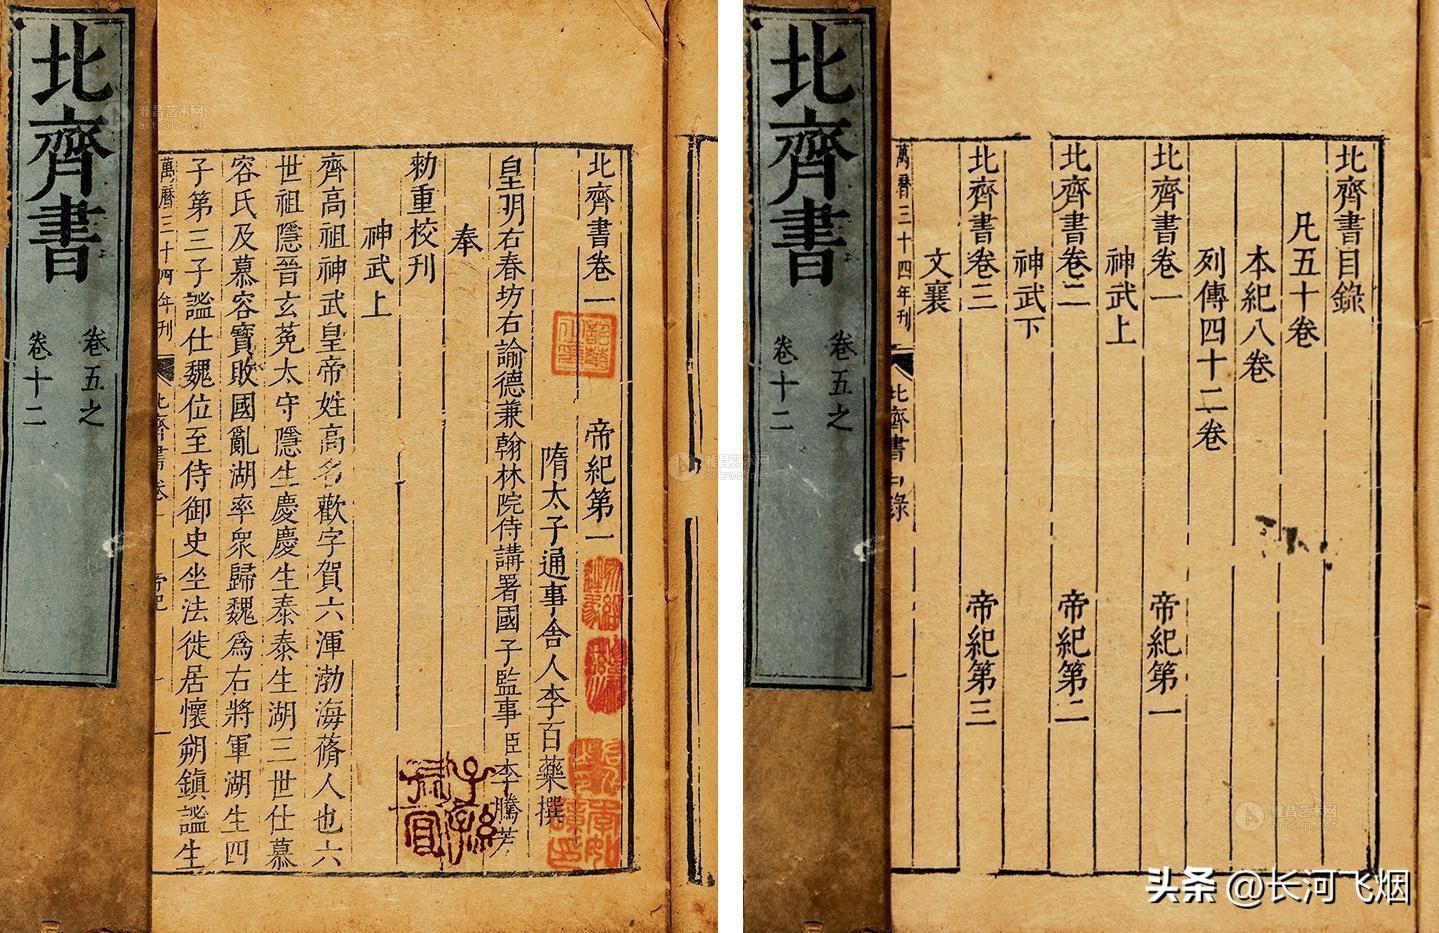 北齊書
卷五之
卷十二
北齊書卷一
帝紀第一
隋太子通事舍人李百藥撰
皇明右春坊右諭德兼翰林院侍講署國子監事臣李騰芳
奉
勑重校刊
神武上
齊高祖神武皇帝姓高名歡字賀六渾渤海蓨人也六
世祖隱晉玄菟太守隱生慶慶生泰泰生湖三世仕慕
容氏及慕容寶敗國亂湖率衆歸魏爲右將軍湖生四
子第三子謐仕魏位至侍御史坐法徙居懷朔鎮謐生
萬曆三十四年刊
北齊書卷一
帝紀
一
雅昌艺术网
artron.net
北齊書
卷五之
卷十二
北齊書目錄
凡五十卷
本紀八卷
列傳四十二卷
北齊書卷一
帝紀第一
神武上
北齊書卷二
帝紀第二
神武下
北齊書卷三
帝紀第三
文襄
萬曆三十四年刊
北齊書目錄
一
雅昌艺术网
artron.net
雅昌艺术网
artron.net
头条 @长河飞烟